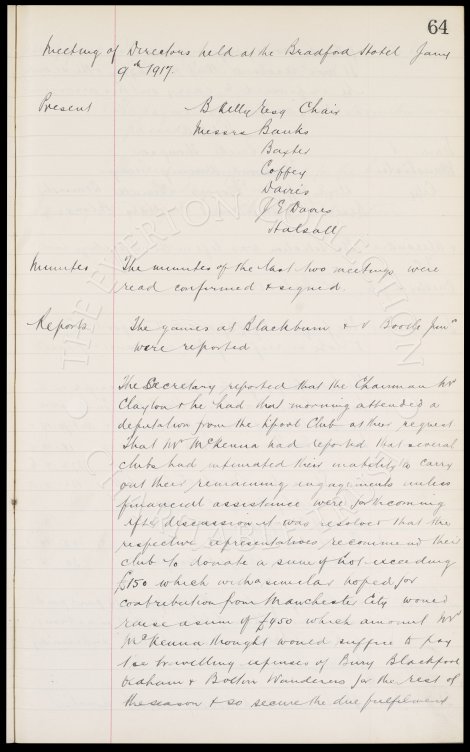 64
Meeting of Directors held at the Bradford Hotel Jany
9th 1917.
Present B Kelly Esq Chair
Messrs Banks
Baxter
Coffey
Davies
J E Davies
Halsall
Minutes The minutes of the last two meetings were
read confirmed & signed.
Reports The games at Blackburn & v Bootle Junrs
were reported
The Secretary reported that the Chairman Mr
Clayton & he had that morning attended a
deputation from the Lpool Club at their request
That Mr McKenna had reported that several
clubs had intimated their inability to carry
out their remaining engagements unless
financial assistance were forthcoming
After discussion it was resolved that the
respective representatives recommend their
club to donate a sum of not exceeding
£150 which with a similar hoped for
contribution from Manchester City would
raise a sum of £450 which amount Mr
McKenna thought would suffice to pay
the travelling expenses of Bury Blackpool
Oldham & Bolton Wanderers for the rest of
the season & so secure the due fulfilment
THE EVERTON COLLECTION